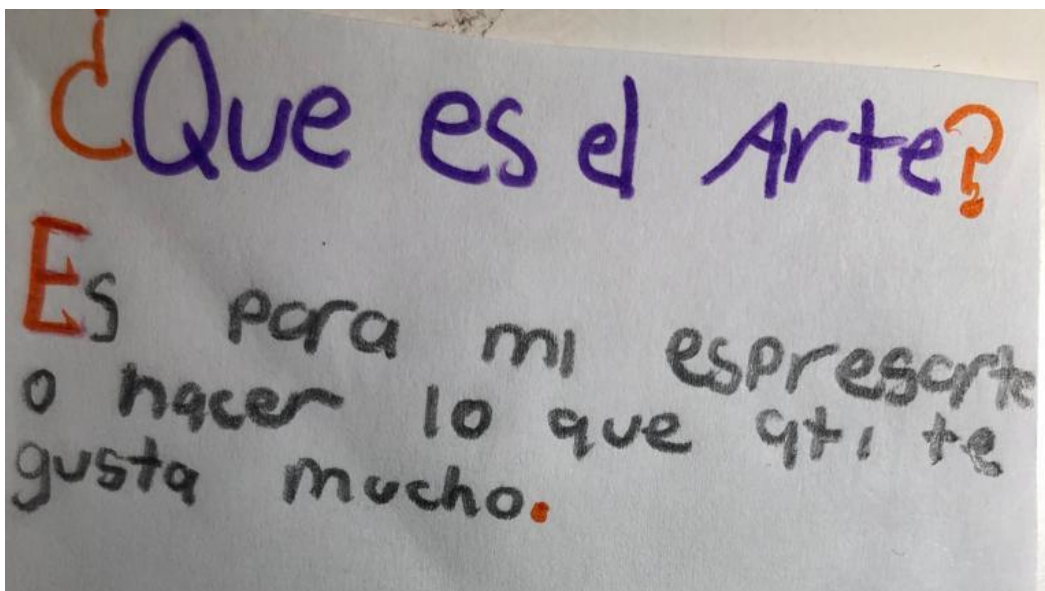 ¿Que es el Arte?
Es para mi espresarte
o hacer lo que ati te
gusta mucho.